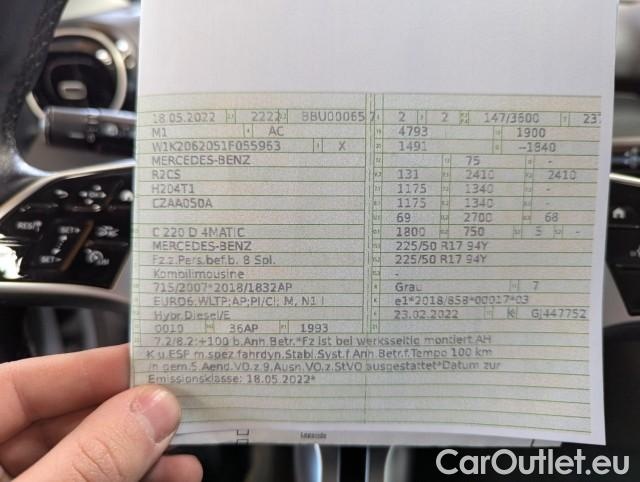 18.05.2022 2222 BBU00065 2 2 147/3600
M1 AC 4793 1900
W1K2062051F055963 X 1491 --1840
MERCEDES-BENZ 75 -
R2CS 131 2410 2410
H204T1 1175 1340 -
CZAA050A 1175 1340 -
69 2700 68
C 220 D 4MATIC 1800 750 5 -
MERCEDES-BENZ 225/50 R17 94Y
Fz.z.Pers.bef.b. 8 Spl. 225/50 R17 94Y
Kombilimousine -
715/2007*2018/1832AP Grau 7
EURO6;WLTP;AP;PI/CI; M, N1 I e1*2018/858*00017*03
Hybr.Diesel/E 23.02.2022 K GJ447752
0010 36AP 1993
7.2/8.2:+100 b.Anh.Betr.*Fz ist bei werksseitig montiert.AH
K u.ESF m.spez.fahrdyn.Stabi.Syst.f.Anh.Betr.f.Tempo 100 km
/n gem.5.Aend.VO.z.9.Ausn.VO.z.StVO ausgestattet*Datum zur
Emissionsklasse: 18.05.2022*
CarOutlet.eu